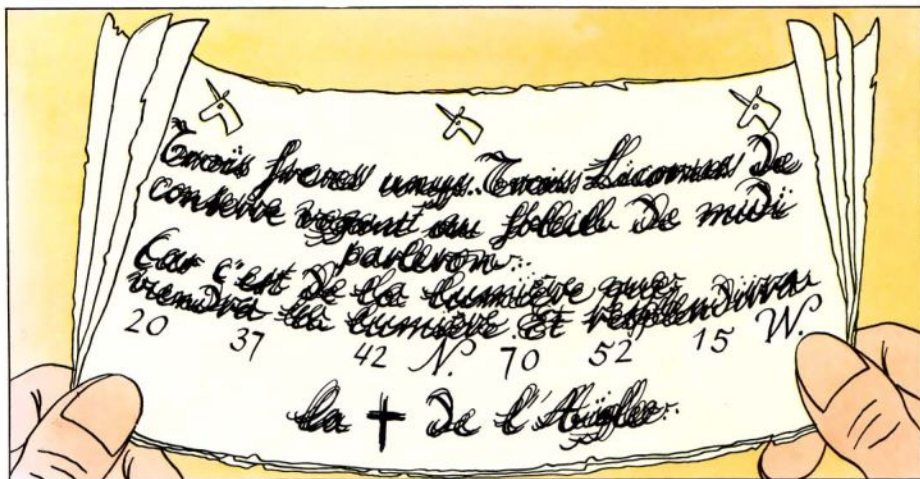 Trois freres unys. Trois Licornes de
conserve vogant au solleil de midi
parleron
Car c'est de la lumière que
viendra la lumière Et resplendira
20 37 42 N. 70 52 15 W.
la † de l'Aigle